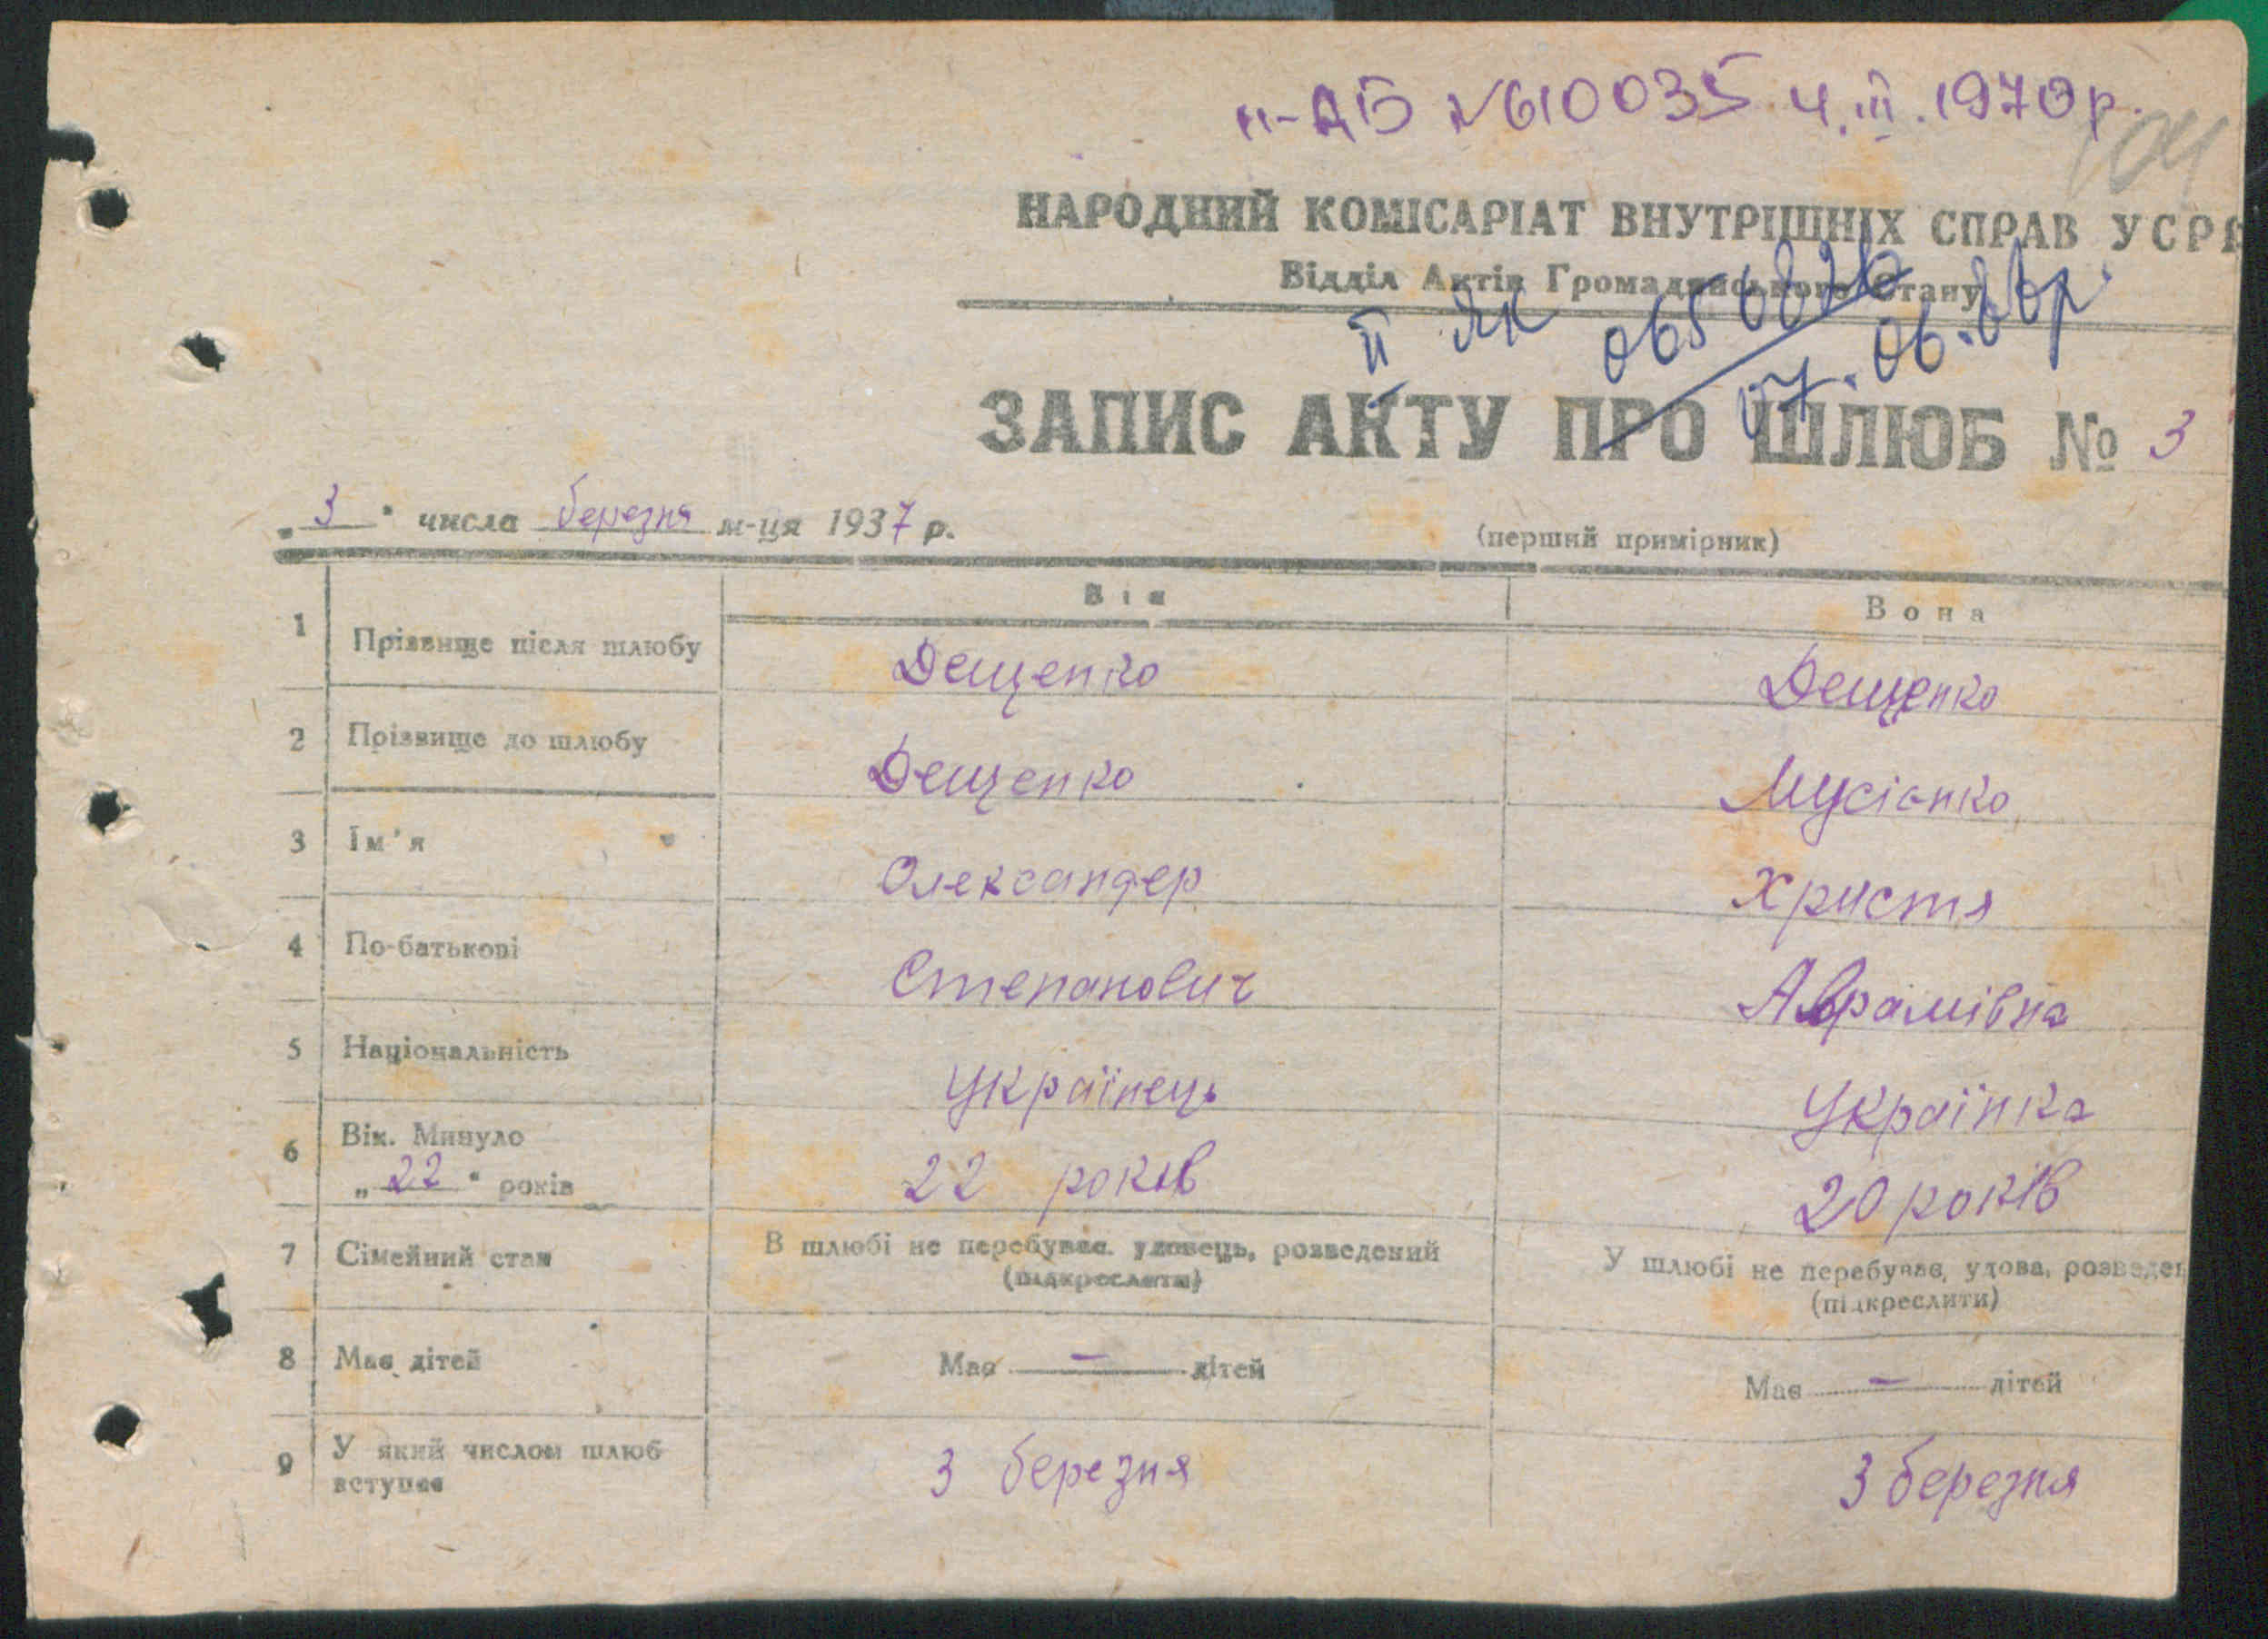 ІІ-АБ №610035 4.ІІІ.1970р.
104
НАРОДНИЙ КОМІСАРІАТ ВНУТРІШНІХ СПРАВ УСРР
Відділ Актів Громадянського Стану
ІІ ЯК
07.06.
ЗАПИС АКТУ ПРО ШЛЮБ № 3
„ 3 " числа березня м-ця 1937 р.
(перший примірник)
Він Вона
1 Прізвище після шлюбу Дещенко Дещенко
2 Прізвище до шлюбу Дещенко Мусієнко
3 Ім'я Олександер Христя
4 По-батькові Степанович Аврамівна
5 Національність Українець Українка
6 Вік. Минуло
„ 22 " років 22 років 20 років
7 Сімейний стан В шлюбі не перебуває, удовець, розведений У шлюбі не перебуває, удова, розведен
(підкреслити) (підкреслити)
8 Має дітей Має — дітей Має — дітей
9 У який числом шлюб
вступає 3 березня 3 березня